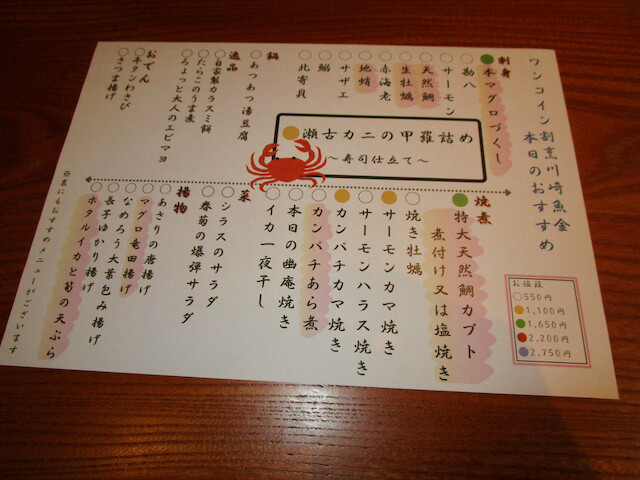 ワンコイン割烹川崎魚金
本日のおすすめ
刺身
本マグロづくし
勘八
サーモン
天然鯛
生牡蠣
赤海老
地蛸
サザエ
鰯
北寄貝
鍋
あつあつ湯豆腐
逸品
自家製カラスミ餅
たらこのうま煮
ちょっと大人のエビマヨ
おでん
牛タンわさび
さつま揚げ
瀬古カニの甲羅詰め
～寿司仕立て～
焼煮
特大天然鯛カブト
煮付け又は塩焼き
焼き牡蠣
サーモンカマ焼き
サーモンハラス焼き
カンパチカマ焼き
カンパチあら煮
本日の幽庵焼き
イカ一夜干し
菜
シラスのサラダ
春菊の爆弾サラダ
揚物
あさりの唐揚げ
マグロ竜田揚げ
なめろう大葉包み揚げ
長芋ゆかり揚げ
ホタルイカと筍の天ぷら
※裏にもおすすめメニューがございます
お値段
550円
1,100円
1,650円
2,200円
2,750円